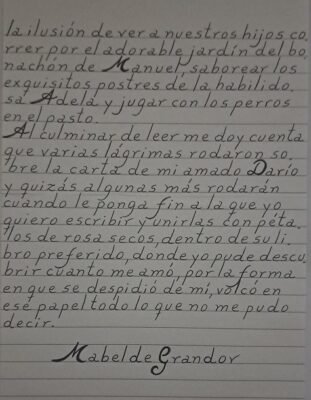 la ilusión de ver a nuestros hijos co.
rrer por el adorable jardín del bo.
nachón de Manuel, saborear los
exquisitos postres de la habilido.
sa Adela y jugar con los perros
en el pasto.
Al culminar de leer me doy cuenta
que varias lágrimas rodaron so.
bre la carta de mi amado Darío
y quizás algunas más rodarán
cuando le ponga fin a la que yo
quiero escribir y unirlas con péta.
los de rosa secos, dentro de su li.
bro preferido, donde yo pude descu.
brir cuanto me amó, por la forma
en que se despidió de mí, volcó en
ese papel todo lo que no me pudo
decir.
Mabel de Grandov